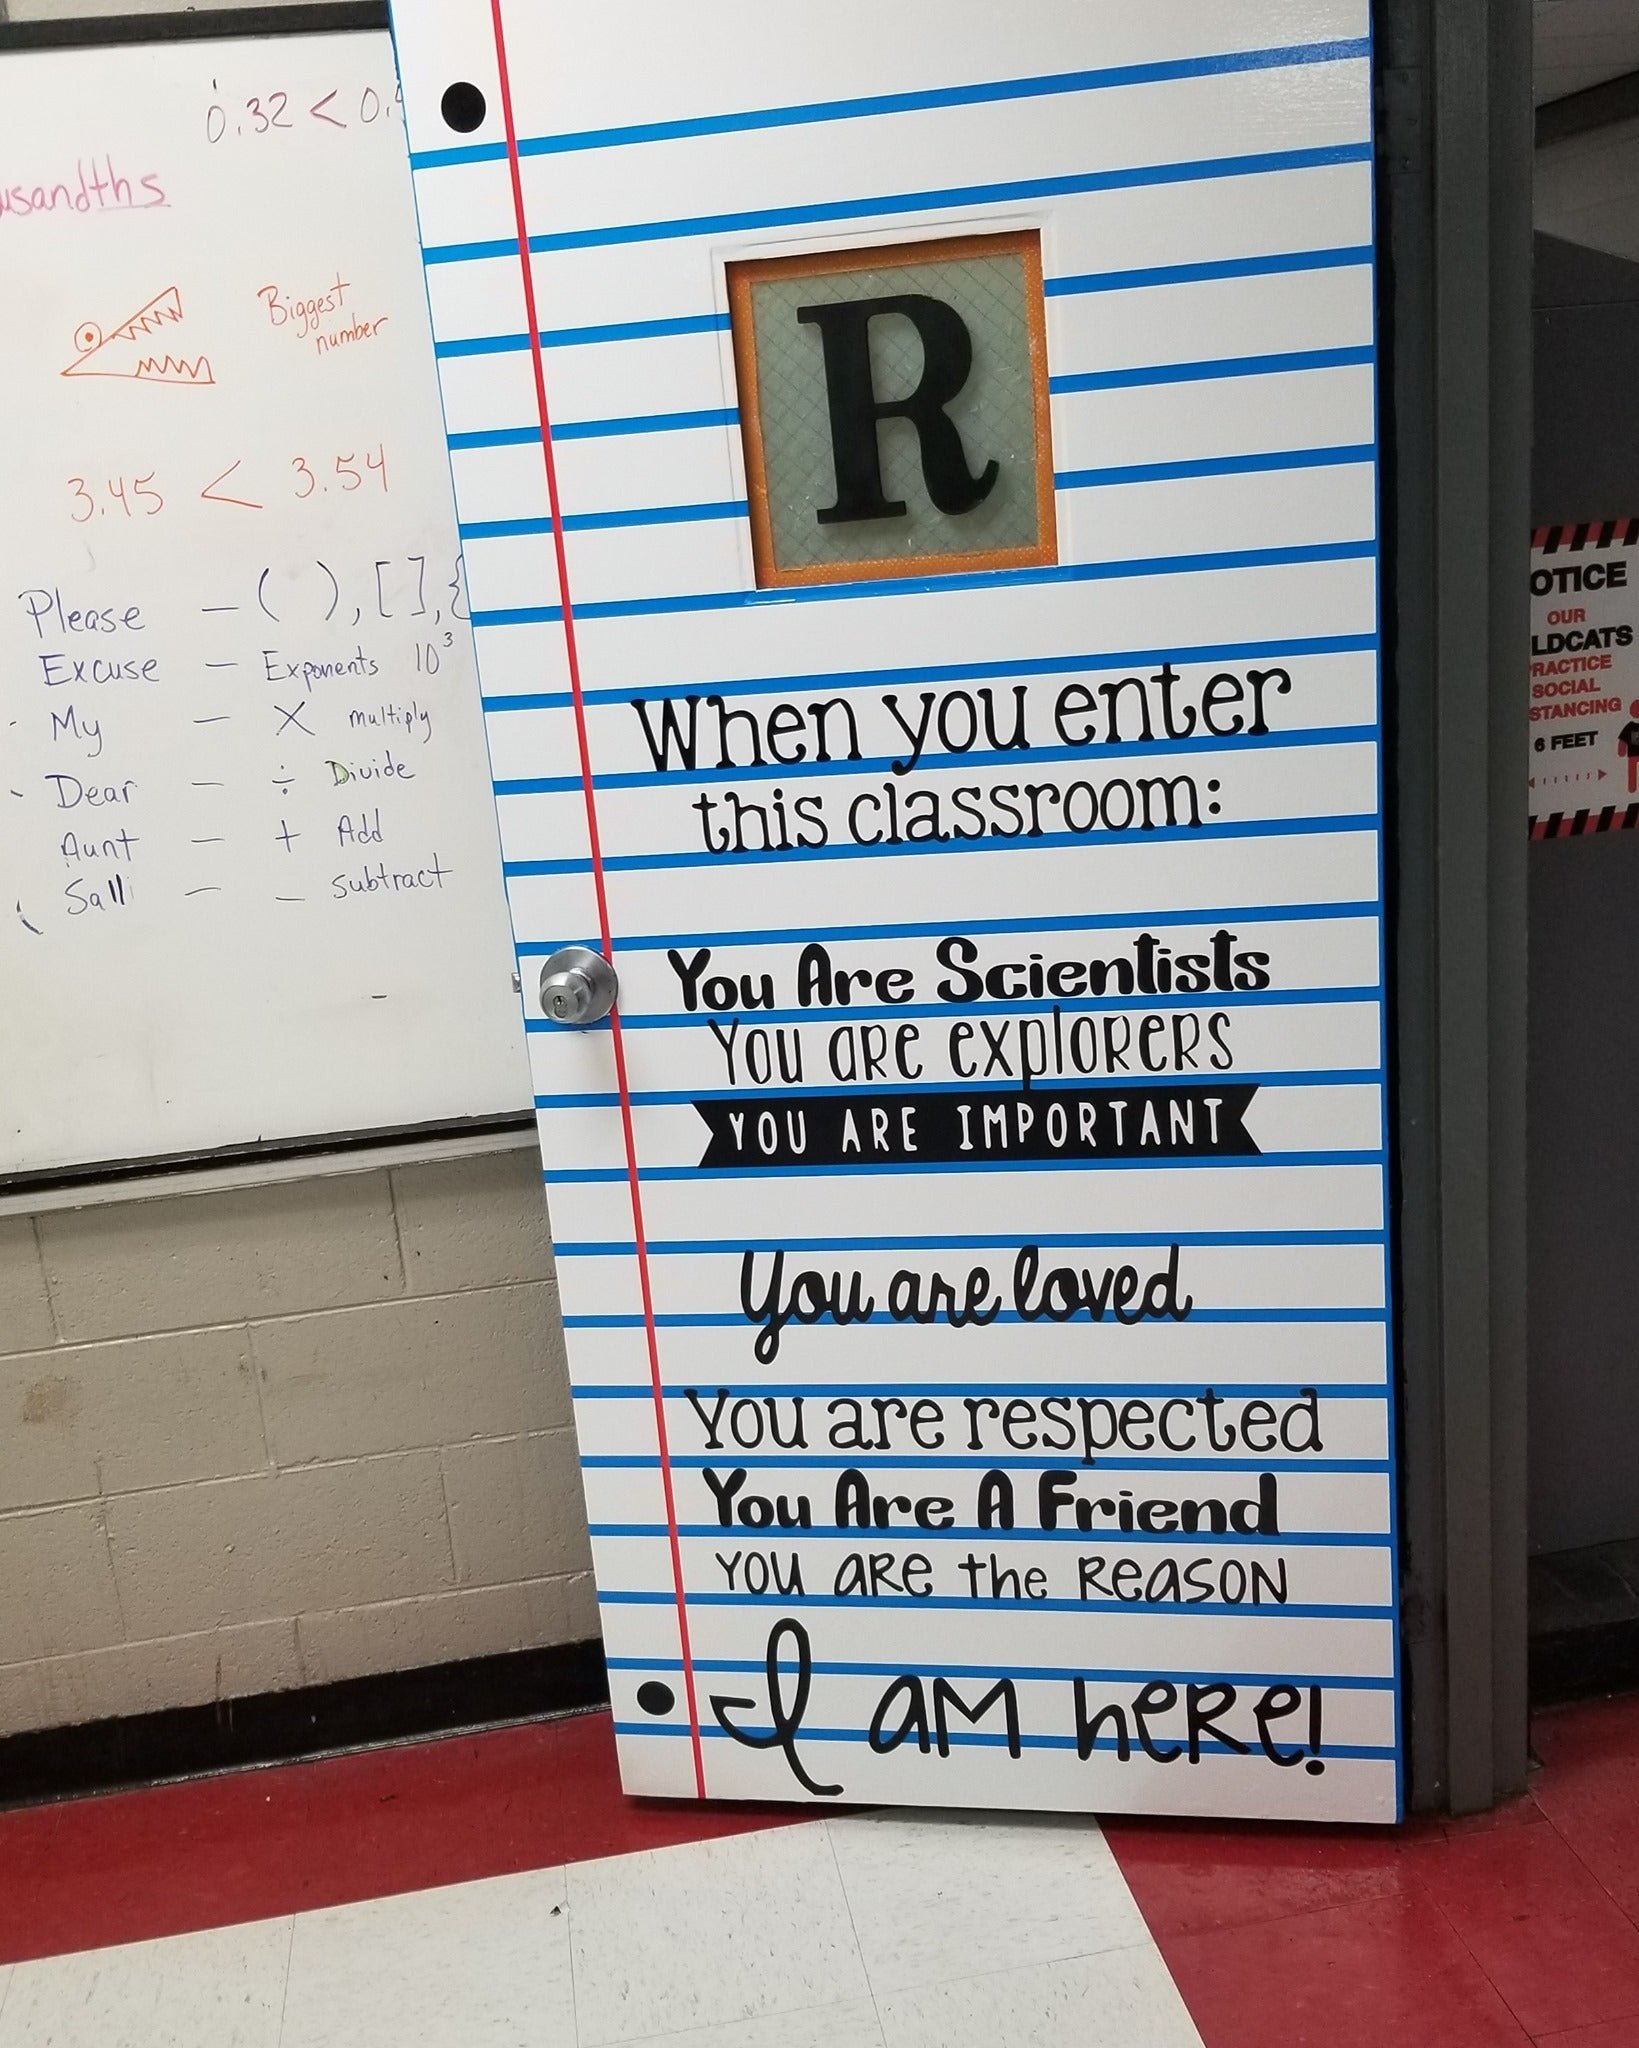 0.32 < 0.
Biggest
number
3.45 < 3.54
Please – ( ), [ ], {
Excuse – Exponents 10³
My – X multiply
Dear – ÷ Divide
Aunt – + Add
Salli – – subtract
R
When you enter
this classroom:
You Are Scientists
You are explorers
YOU ARE IMPORTANT
You are loved
You are respected
You Are A Friend
you are the reason
I am here!
OTICE
OUR
LDCATS
RACTICE
SOCIAL
STANCING
6 FEET